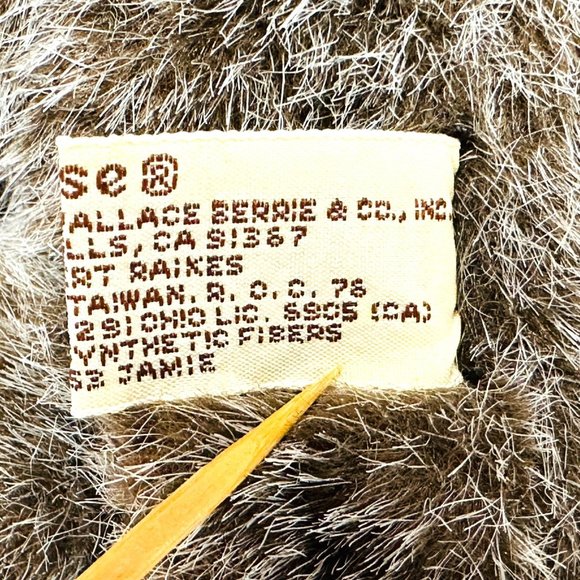 se®
ALLACE BERRIE & CO., INC.
LLS, CA 91367
RT RAINES
TAIWAN, R. O. C. 78
291 OHIO LIC. 5905 (CA)
YNTHETIC FIBERS
JAMIE